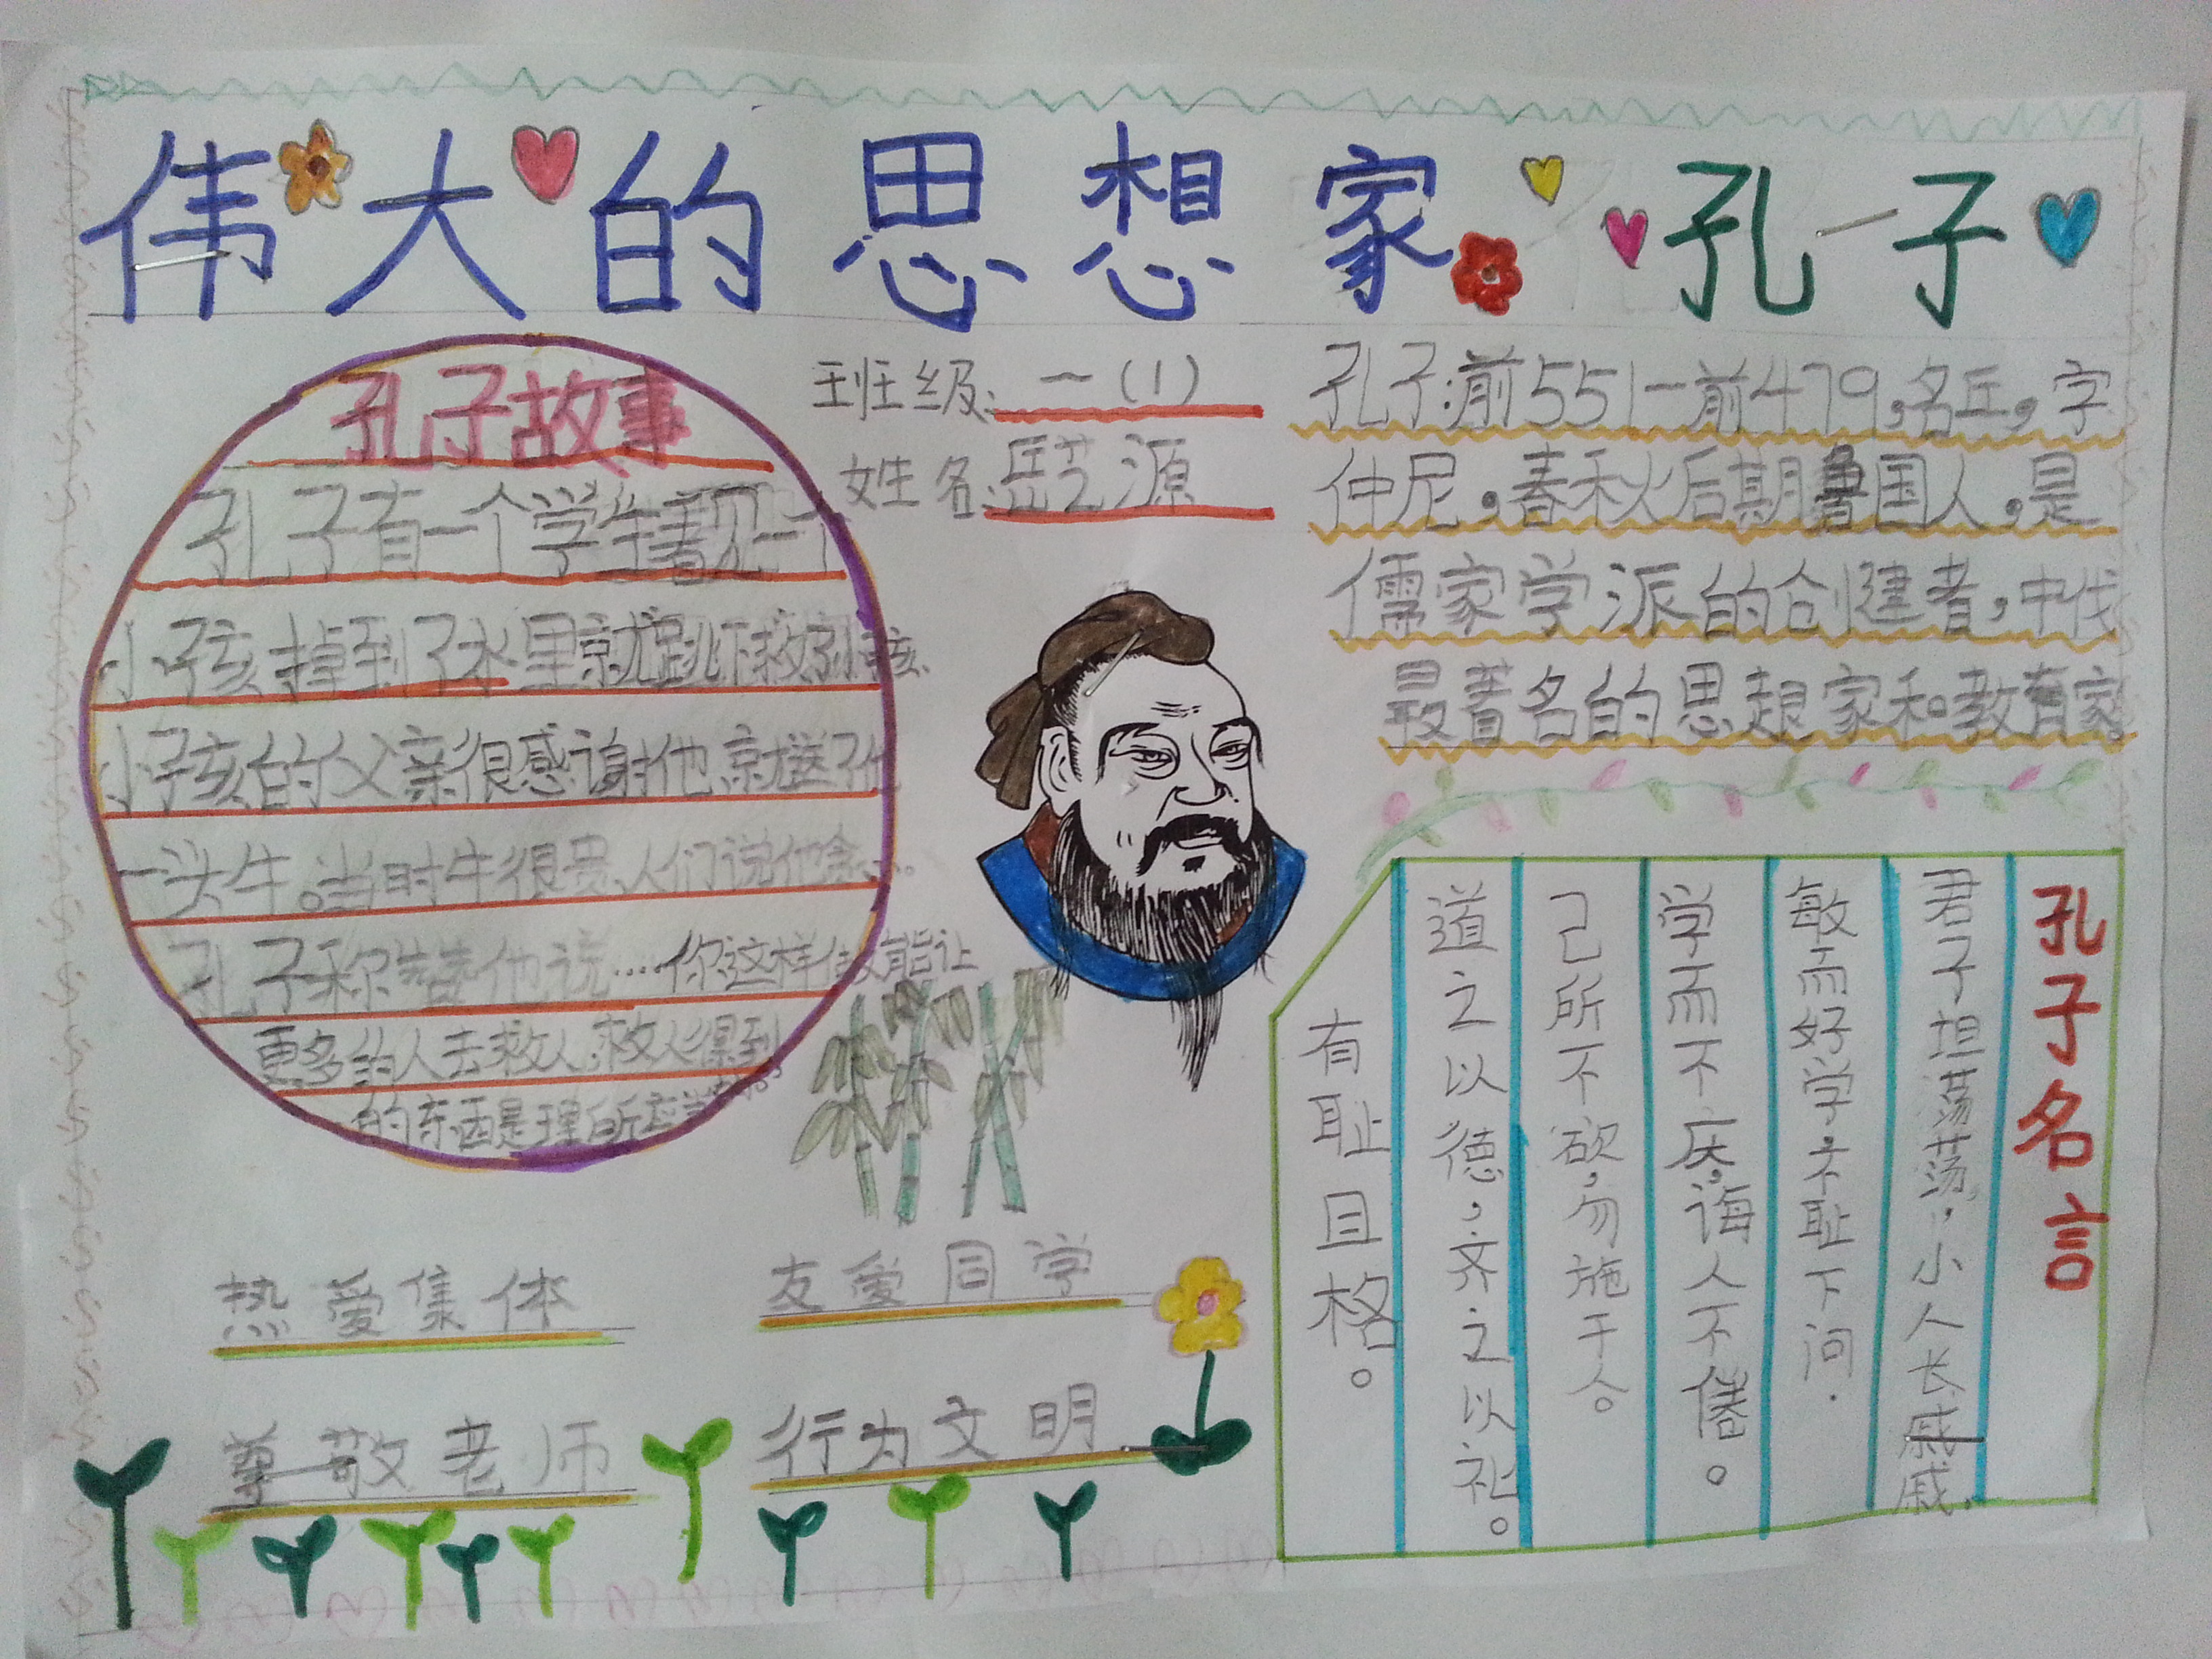 伟大的思想家孔子
孔子故事
孔子有一个学生看见一个
小孩掉到了水里就跳下救了小孩.
小孩的父亲很感谢他就送了他
一头牛。当时牛很贵,人们说他贪...
孔子称赞他说....你这样做能让
更多的人去救人,救人得到
的东西是理所应当的。
班级:一(1)
姓名:岳艺源
孔子:前551—前479,名丘,字
仲尼,春秋后期鲁国人,是
儒家学派的创建者,中代
最著名的思想家和教育家。
孔子名言
君子坦荡荡,小人长戚戚.
敏而好学,不耻下问.
学而不厌,诲人不倦。
己所不欲,勿施于人。
道之以德,齐之以礼。
有耻且格。
热爱集体
友爱同学
尊敬老师
行为文明